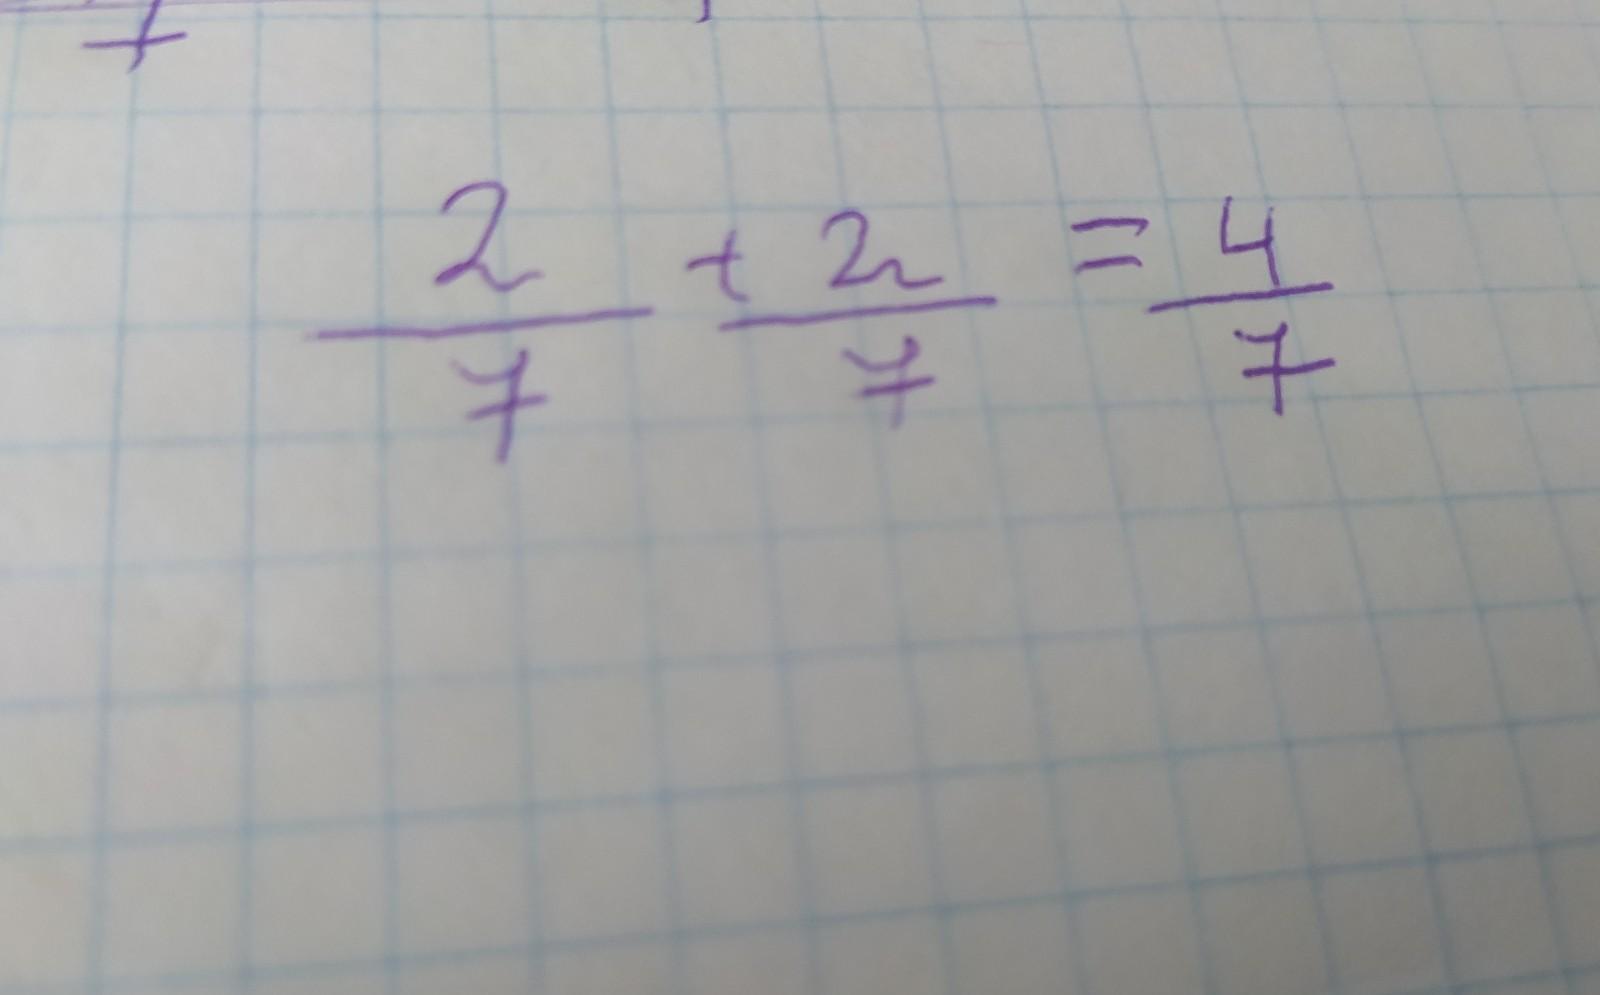 2/7 + 2/7 = 4/7